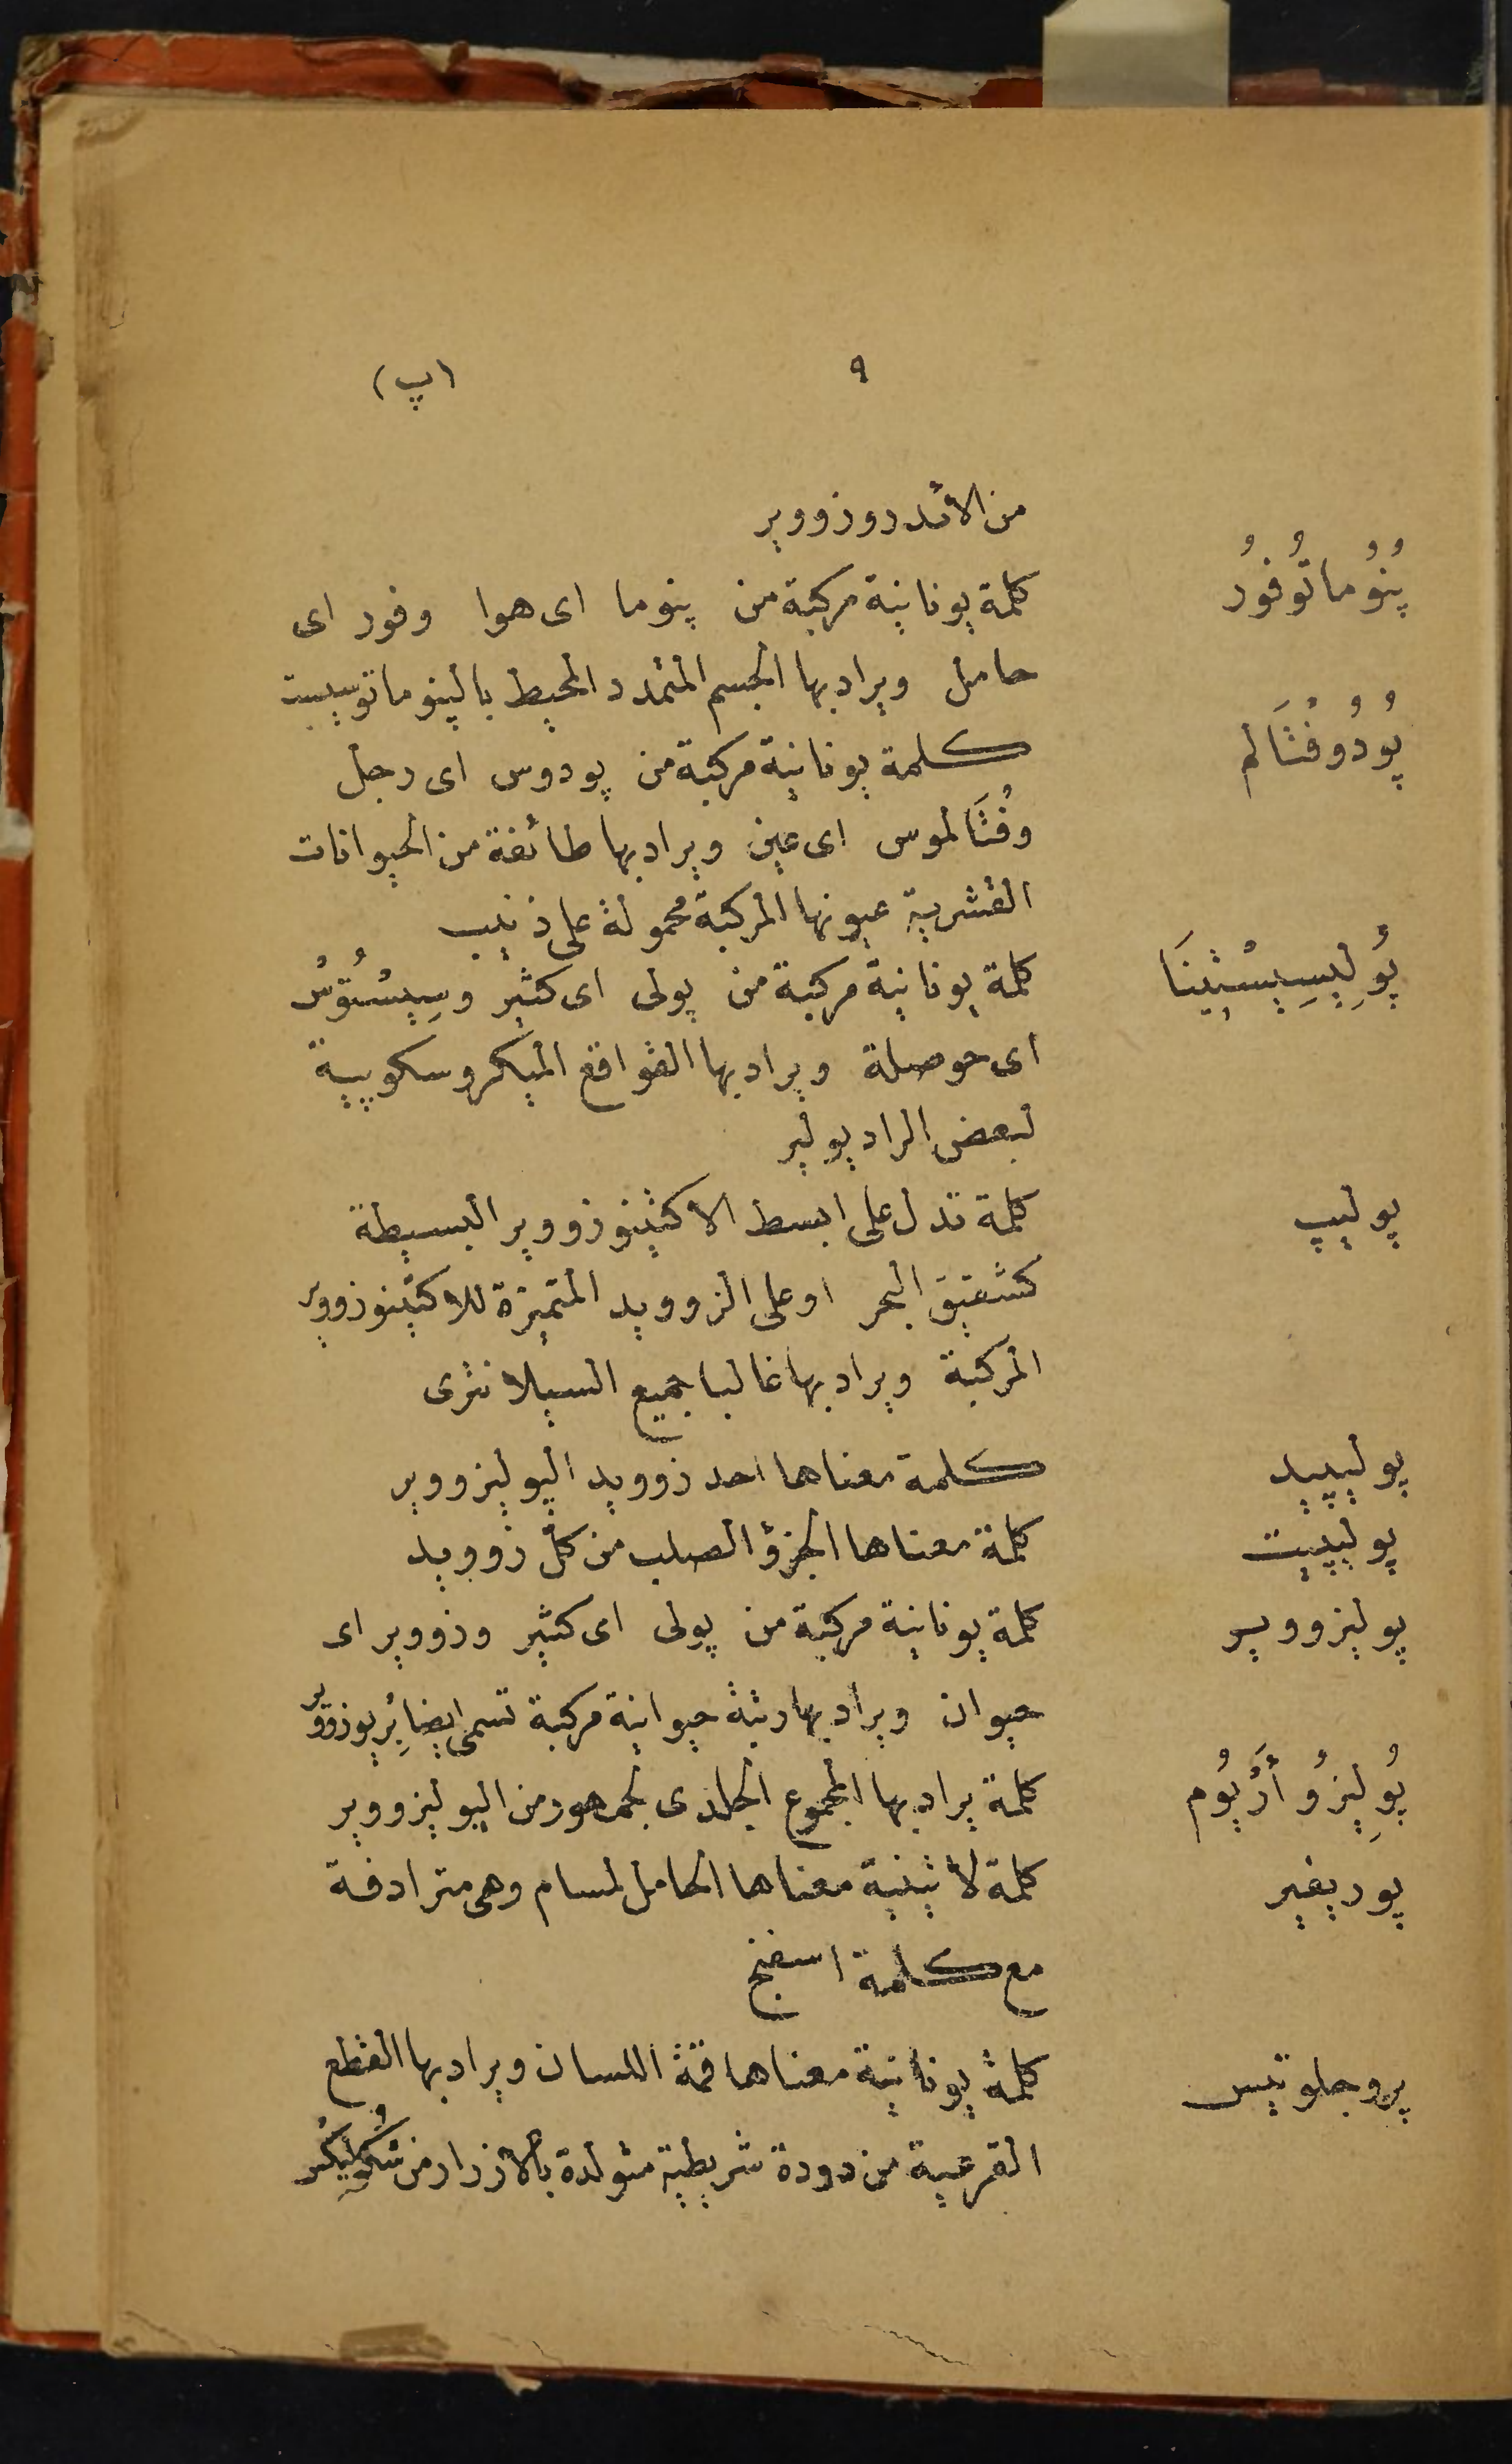 ٩ (پ)
من الأندروزووير
پُنُوُماتُوفُورُ كلمة يونانية مركبة من پنوما اى هوا وفور اى
حامل ويراد بها الجسم المتمدد المحيط بالپنوماتوسيست
پُودُوفُثَالم كلمة يونانية مركبة من پودوس اى رجل
وفُثَالموس اى عين ويراد بها طائفة من الحيوانات
القشرية عيونها المركبة محمولة على ذنيب
پُولِيسِيسْتِينَا كلمة يونانية مركبة من پولى اى كثير وسِيسْتُوسْ
اى حوصلة ويراد بها القواقع الميكروسكوپية
لبعض الراديولير
پوليپ كلمة تدل على ابسط الاكتينوزووير البسيطة
كشقيق البحر او على الزوويد المتميزة للاكتينوزووير
المركبة ويراد بها غالبا جميع السيلانترى
پوليپيد كلمة معناها احد زوويد الپوليزووير
پوليپيت كلمة معناها الجزؤ الصلب من كل زوويد
پوليزووير كلمة يونانية مركبة من پولى اى كثير وزووير اى
حيوان ويراد بها رتبة حيوانية مركبة تسمى ايضا بِرْيوزووير
پُولِيزُو أَرْيُوم كلمة يراد بها المجموع الجلدى لجمهور من الپوليزووير
پوريفير كلمة لاتينية معناها الحامل لمسام وهى مترادفة
مع كلمة اسفنج
پروجلوتيس كلمة يونانية معناها قمة اللسان ويراد بها القطع
القرعية من دودة شريطية متولدة بالازرار من سْكُولِيكْس